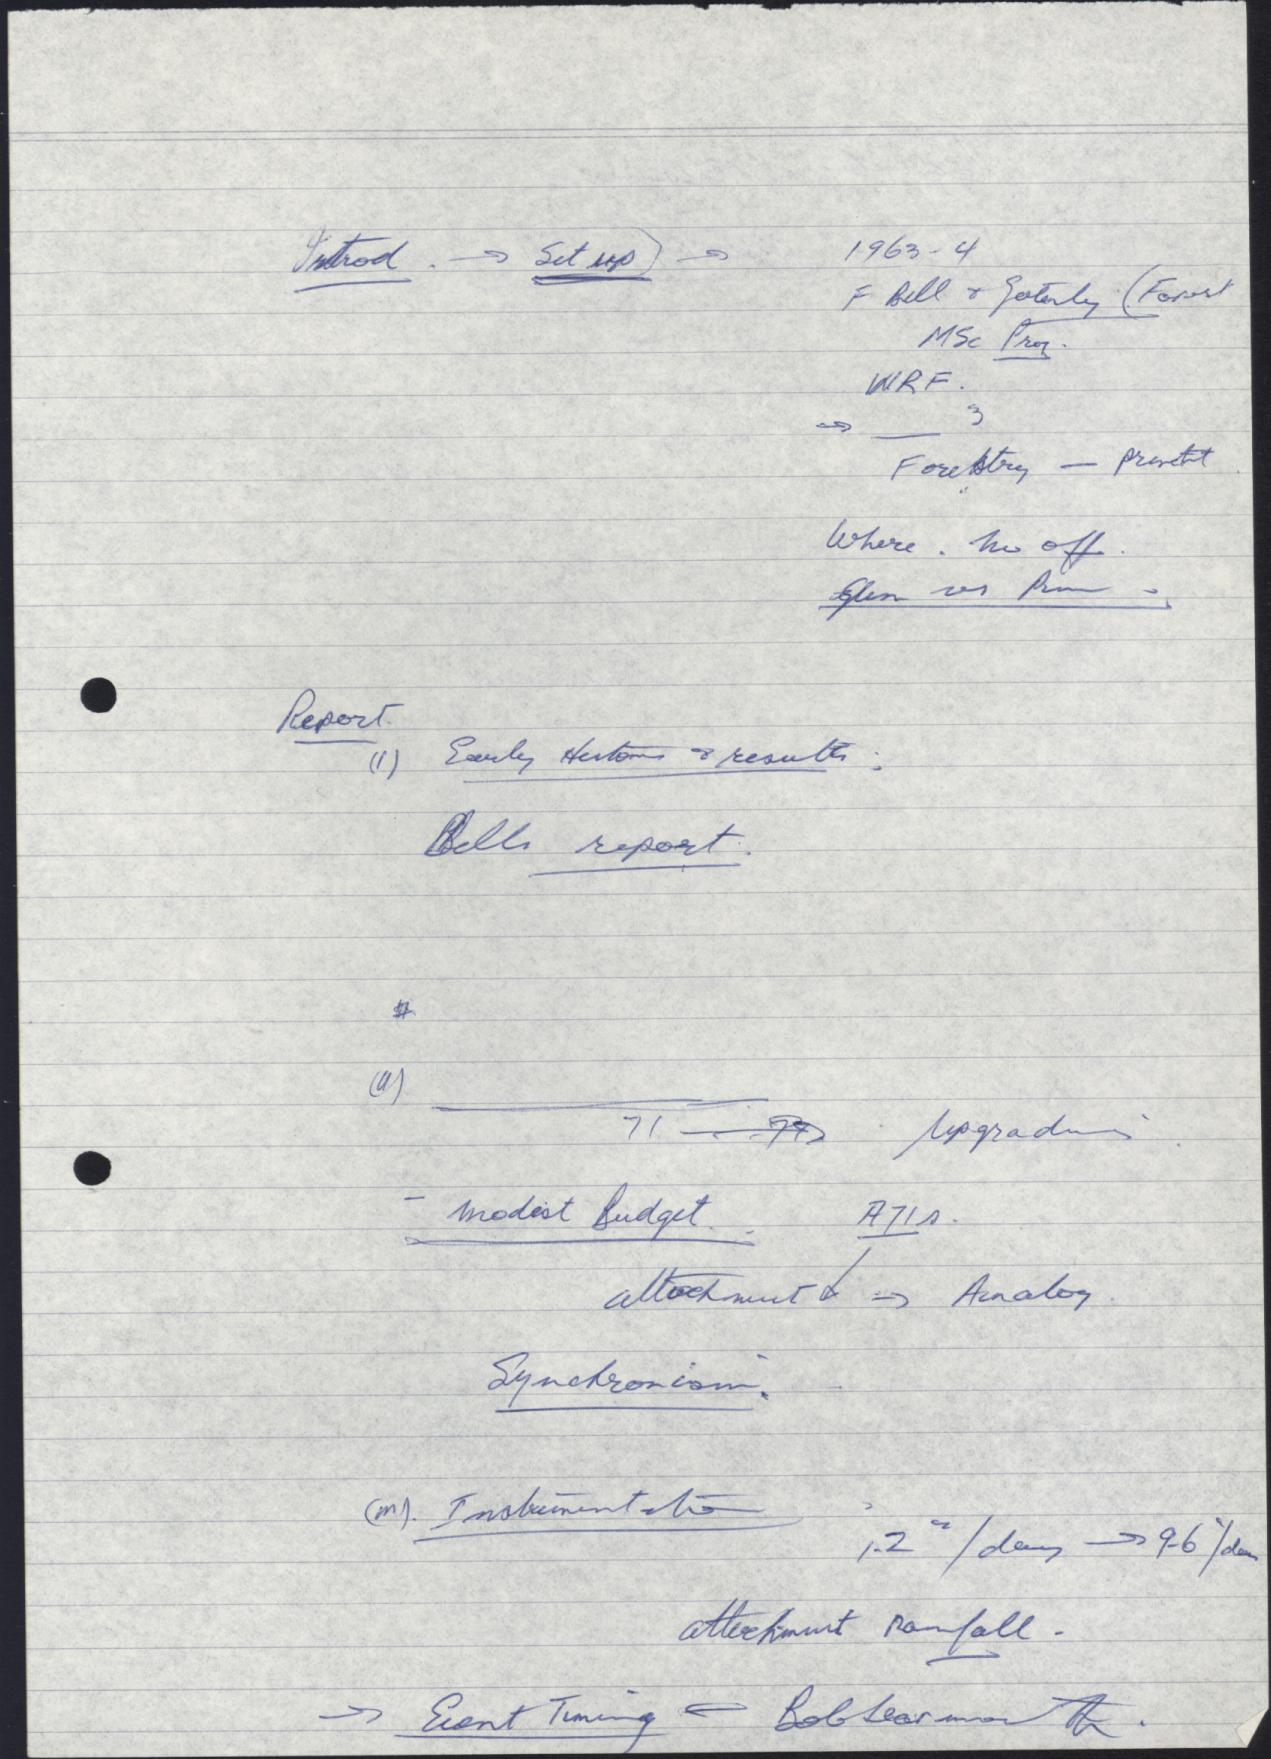 Introd. → Set up) → 1963-4
F Bell & (Forest
MSc Prog.
WRF.
→ __ 3
Forestry — present
Where. no off.
Report.
(1) Early History & results:
Bells report.
(11)
71 → 74 Upgrading
- modest Budget. A71s.
attachment → Analog
Synchronism.
(111). Instrumentation
1.2"/day → 9.6"/day
attachment rainfall.
→ Event Timing Bob Learmonth.